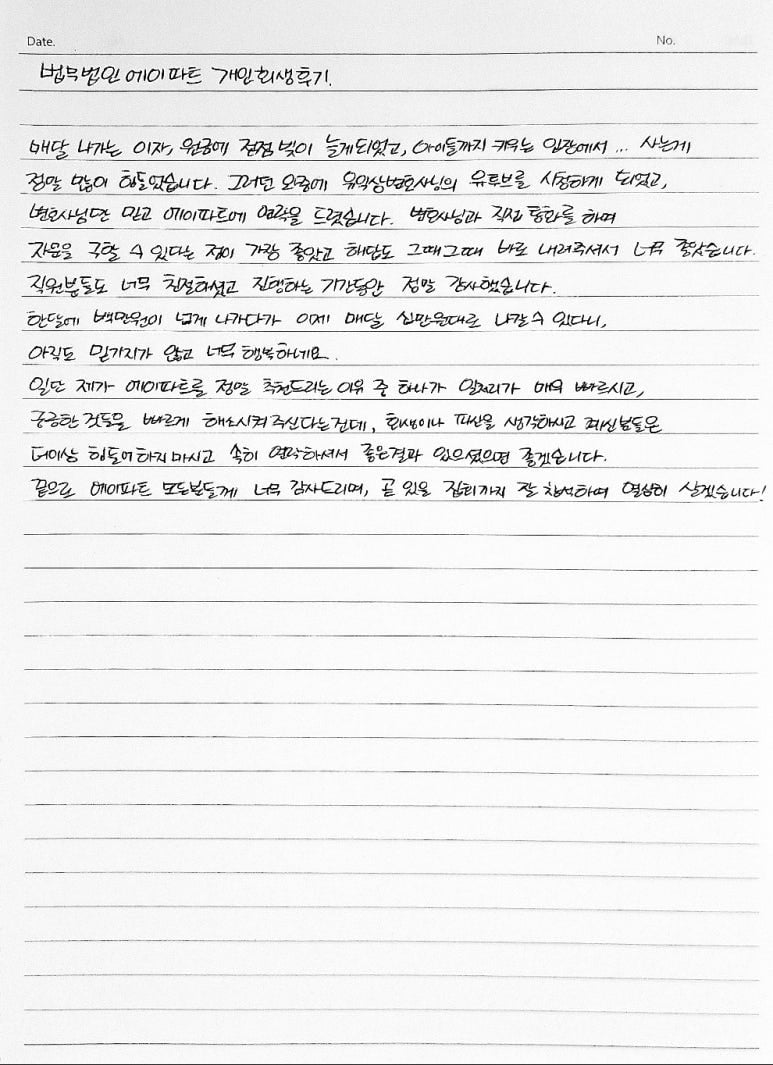 Date.
No.
법무법인 에이파트 개인회생후기.
매달 나가는 이자, 원금에 점점 빚이 늘게되었고, 아이들까지 키우는 입장에서 ... 사는게
정말 많이 힘들었습니다. 그러던 와중에 유익상변호사님의 유튜브를 시청하게 되었고,
변호사님만 믿고 에이파트에 연락을 드렸습니다. 변호사님과 직접 통화를 하며
자문을 구할 수 있다는 점이 가장 좋았고 해답도 그때그때 바로 내려주셔서 너무 좋았습니다.
직원분들도 너무 친절하셨고 진행하는 기간동안 정말 감사했습니다.
한달에 백만원이 넘게 나가다가 이제 매달 십만원대로 나갈 수 있다니,
아직도 믿기지가 않고 너무 행복하네요.
일단 제가 에이파트를 정말 추천드리는 이유 중 하나가 일처리가 매우 빠르시고,
궁금한 것들을 빠르게 해소시켜 주신다는건데, 회생이나 파산을 생각하시고 계신분들은
더이상 힘들어하지마시고 속히 연락하셔서 좋은결과 있으셨으면 좋겠습니다.
끝으로 에이파트 모든분들께 너무 감사드리며, 곧 있을 집회까지 잘 참석하며 열심히 살겠습니다!